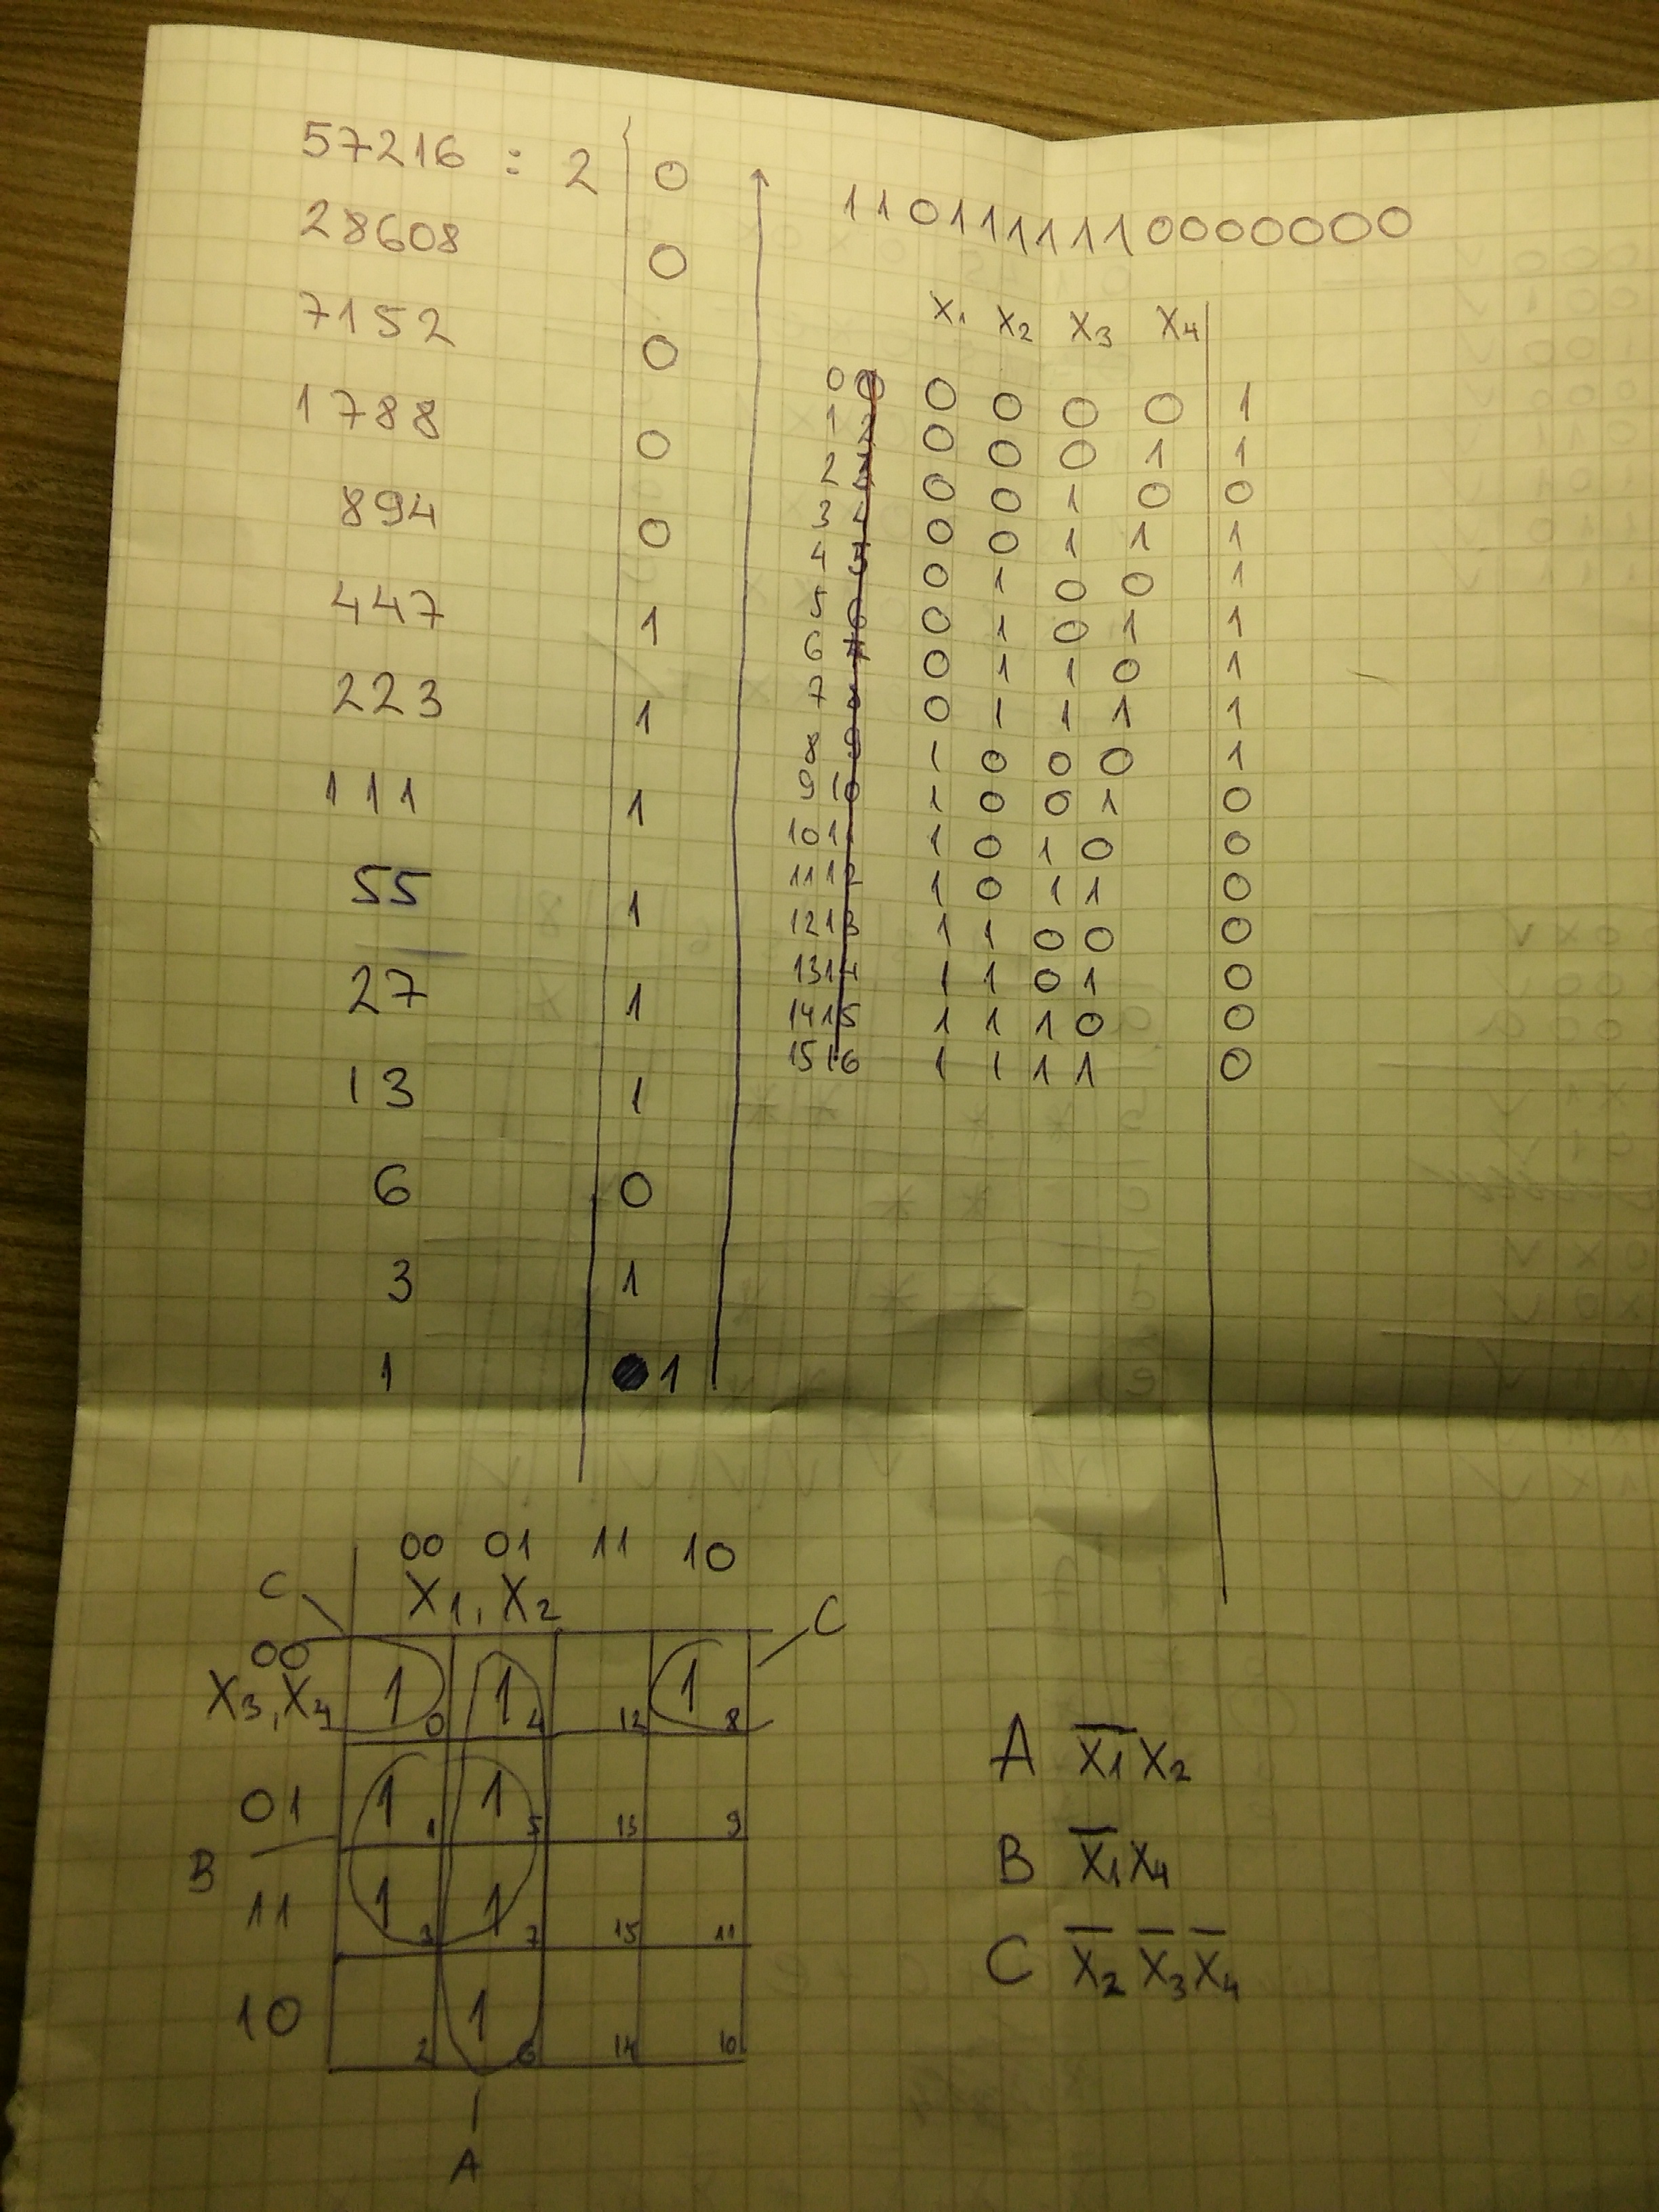 57216 : 2 0
28608 0
7152 0
1788 0
894 0
447 1
223 1
111 1
55 1
27 1
13 1
6 0
3 1
1 1
1101111110000000
X1 X2 X3 X4
0 0 0 0 0 1
1 0 0 0 1 1
2 0 0 1 0 0
3 0 0 1 1 1
4 0 1 0 0 1
5 0 1 0 1 1
6 0 1 1 0 1
7 0 1 1 1 1
8 1 0 0 0 1
9 10 1 0 0 1 0
10 1 0 1 0 0
11 12 1 0 1 1 0
12 13 1 1 0 0 0
13 14 1 1 0 1 0
14 15 1 1 1 0 0
15 16 1 1 1 1 0
00 01 11 10
C X1, X2 C
00
X3, X4 1 0 1 4 12 1 8
01 1 1 1 5 13 9
B
11 1 3 1 7 15 11
10 2 1 6 14 10
A
A X̅1̅ X2
B X̅1̅ X4
C X̅2̅ X̅3̅ X̅4̅